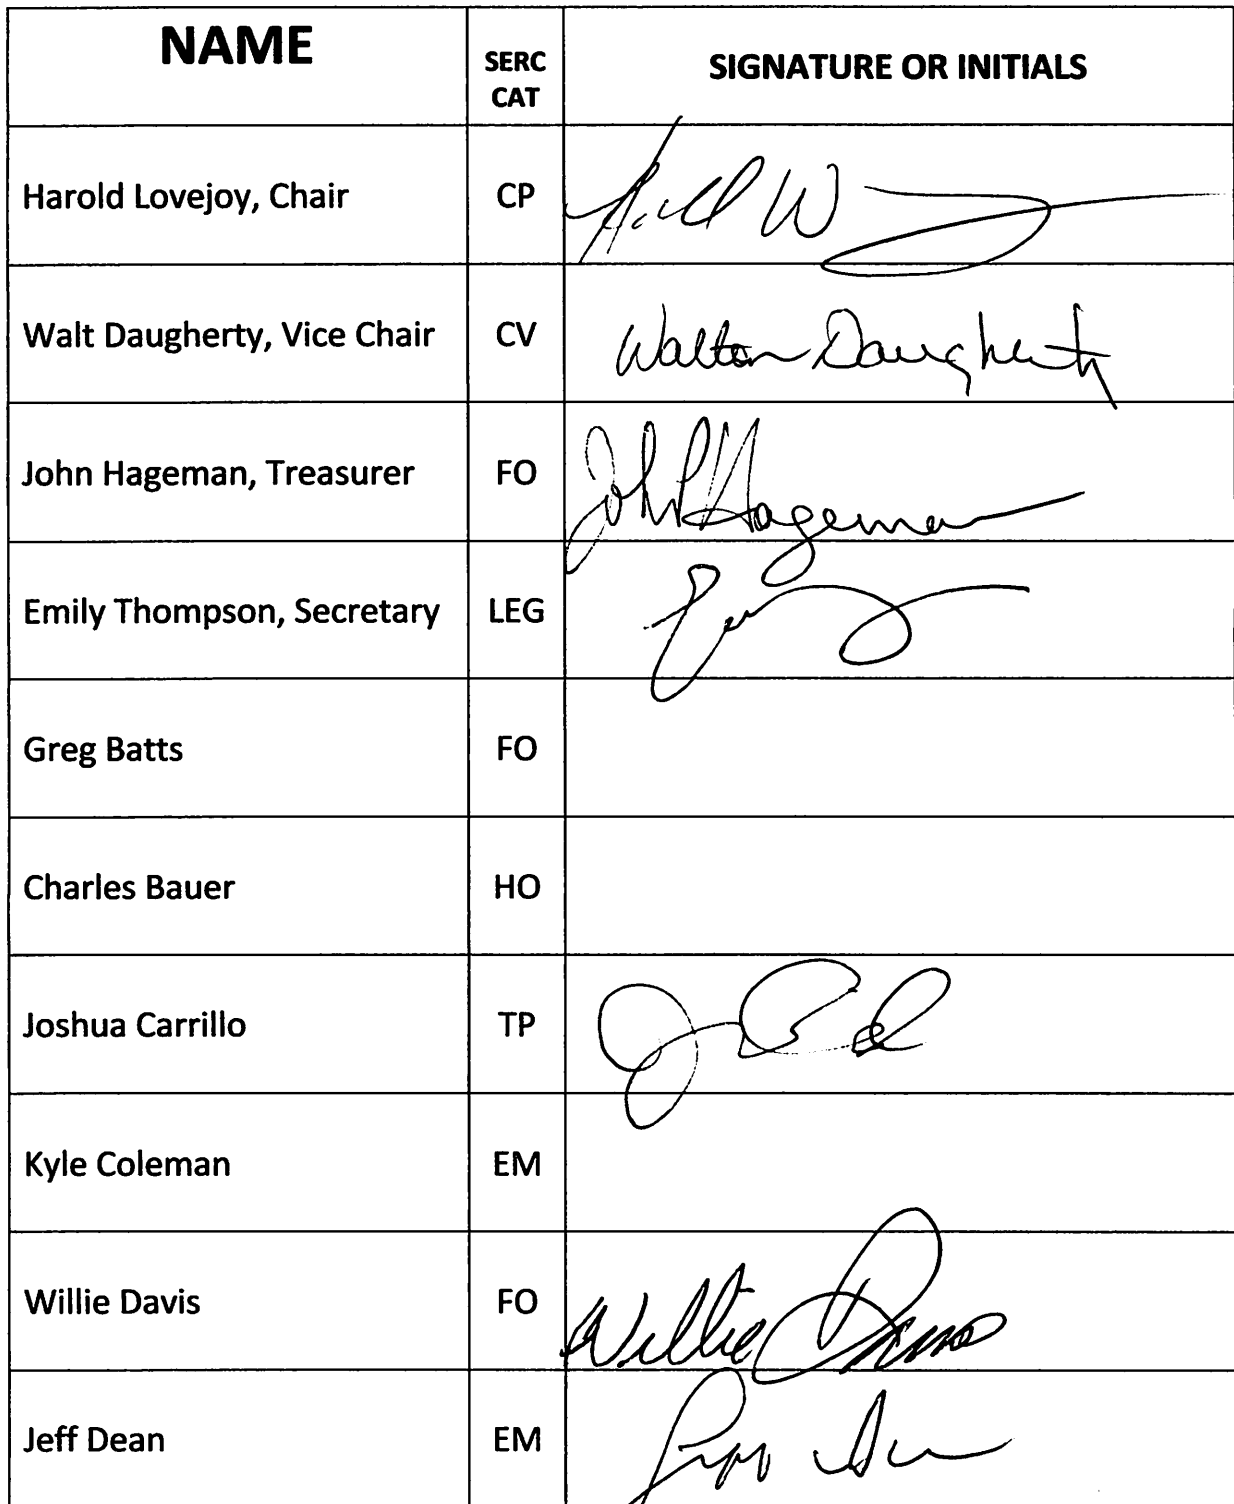 NAME SERC CAT SIGNATURE OR INITIALS
Harold Lovejoy, Chair CP
Walt Daugherty, Vice Chair CV Walton Daugherty
John Hageman, Treasurer FO John Hageman
Emily Thompson, Secretary LEG
Greg Batts FO
Charles Bauer HO
Joshua Carrillo TP
Kyle Coleman EM
Willie Davis FO Willie Davis
Jeff Dean EM